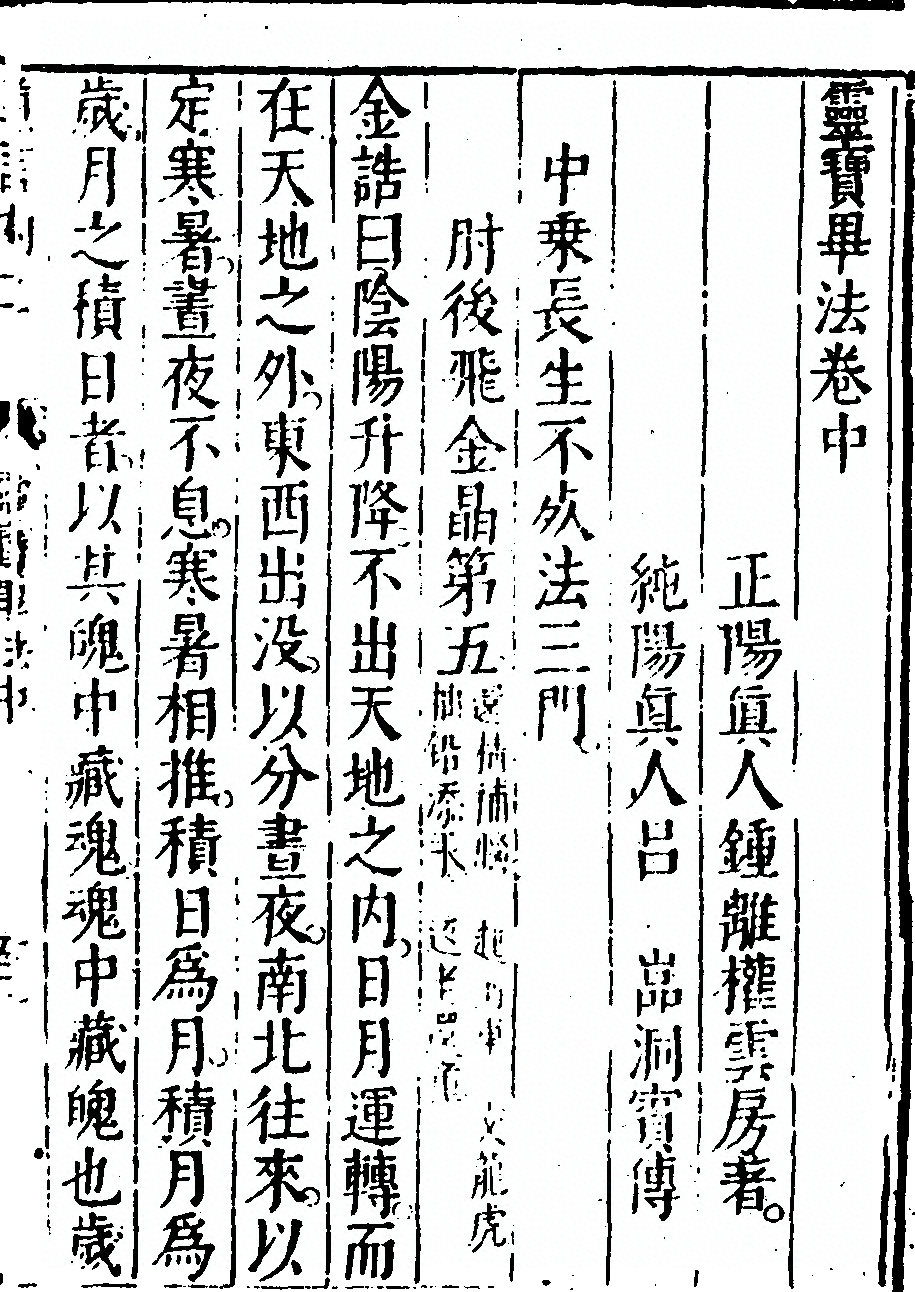 靈寶畢法卷中
正陽眞人鍾離權雲房著
純陽眞人呂 嵓洞賓傳
中乗長生不死法三門
肘後飛金晶第五
還精補腦 起河車 交龍虎
抽鉛添汞 返老還童
金誥曰陰陽升降不出天地之内日月運轉而
在天地之外東西出没以分晝夜南北往來以
定寒暑晝夜不息寒暑相推積日爲月積月爲
歲月之積日者以其魄中藏魂魂中藏魄也歲